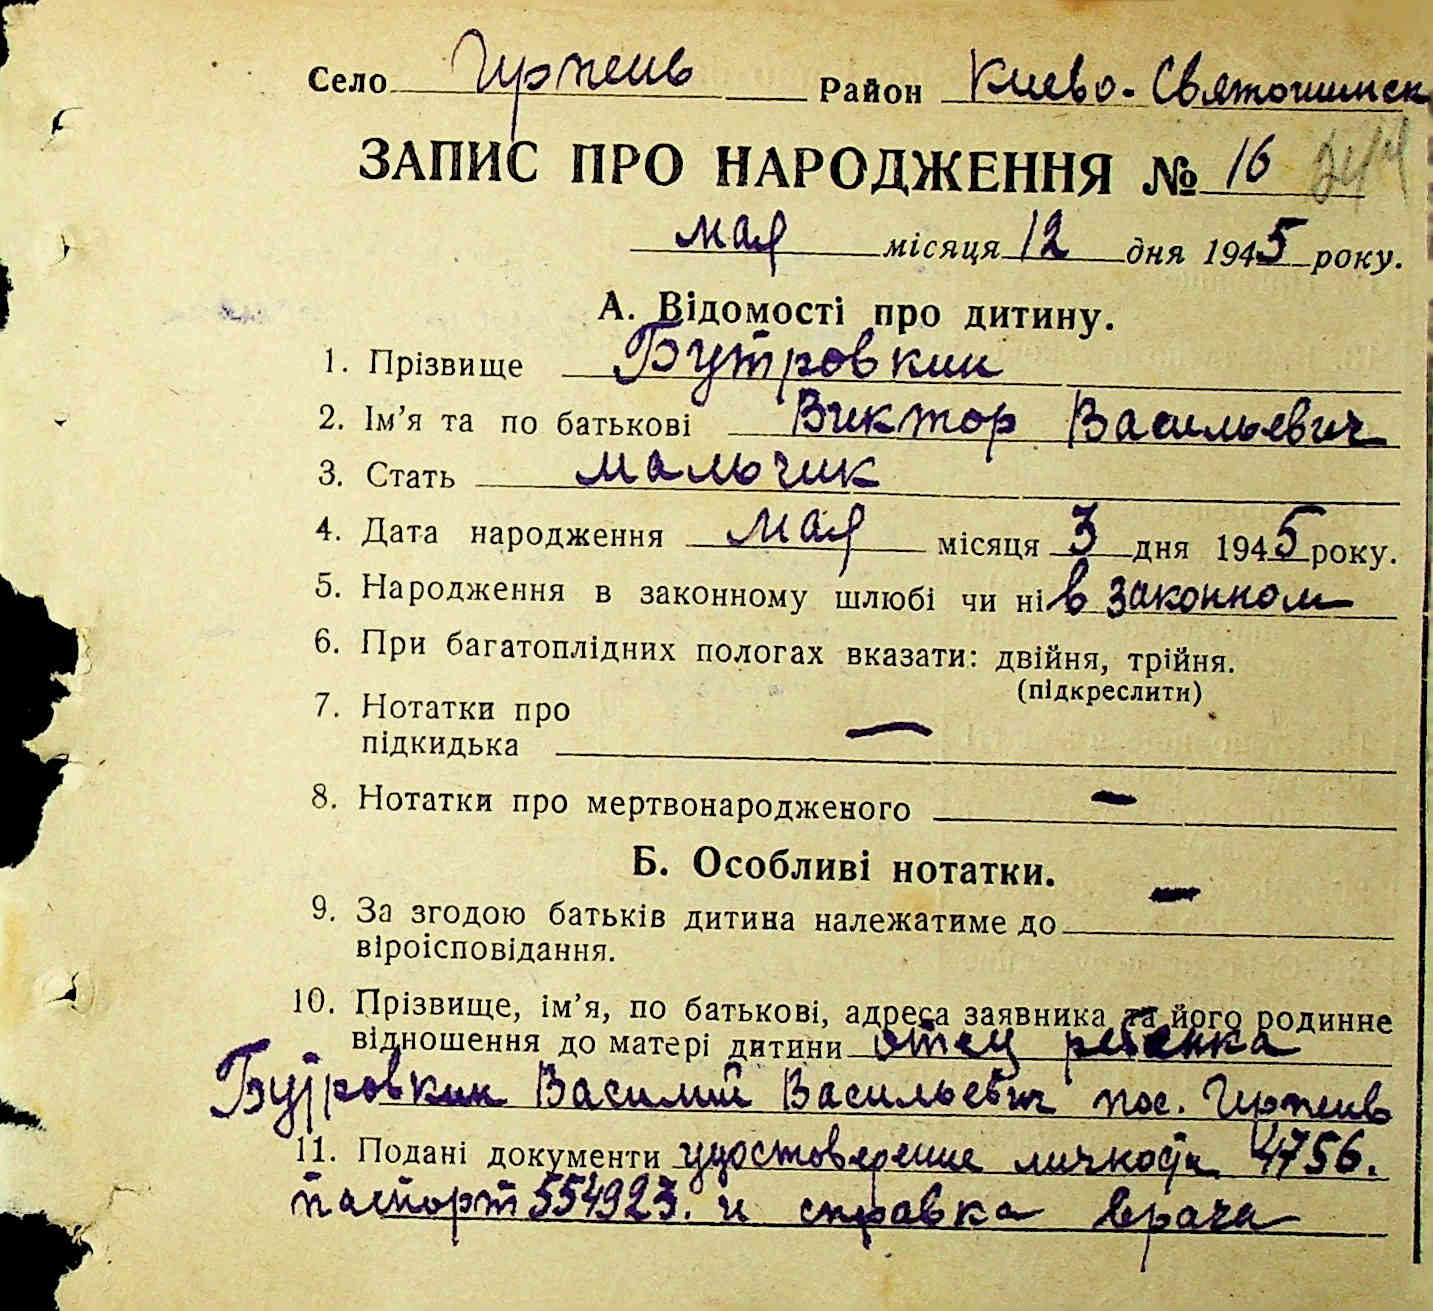 Село Ирпень Район Киево-Святошинск
ЗАПИС ПРО НАРОДЖЕННЯ № 16
мая місяця 12 дня 1945 року.
А. Відомості про дитину.
1. Прізвище Бутровкин
2. Ім'я та по батькові Виктор Васильевич
3. Стать мальчик
4. Дата народження мая місяця 3 дня 1945 року.
5. Народження в законному шлюбі чи ні в законном
6. При багатоплідних пологах вказати: двійня, трійня.
(підкреслити)
7. Нотатки про
підкидька —
8. Нотатки про мертвонародженого —
Б. Особливі нотатки.
9. За згодою батьків дитина належатиме до —
віроісповідання.
10. Прізвище, ім'я, по батькові, адреса заявника та його родинне
відношення до матері дитини отец ребенка
Бутровкин Василий Васильевич пос. Ирпень
11. Подані документи удостоверение личности 4756.
паспорт 554923. и справка врача